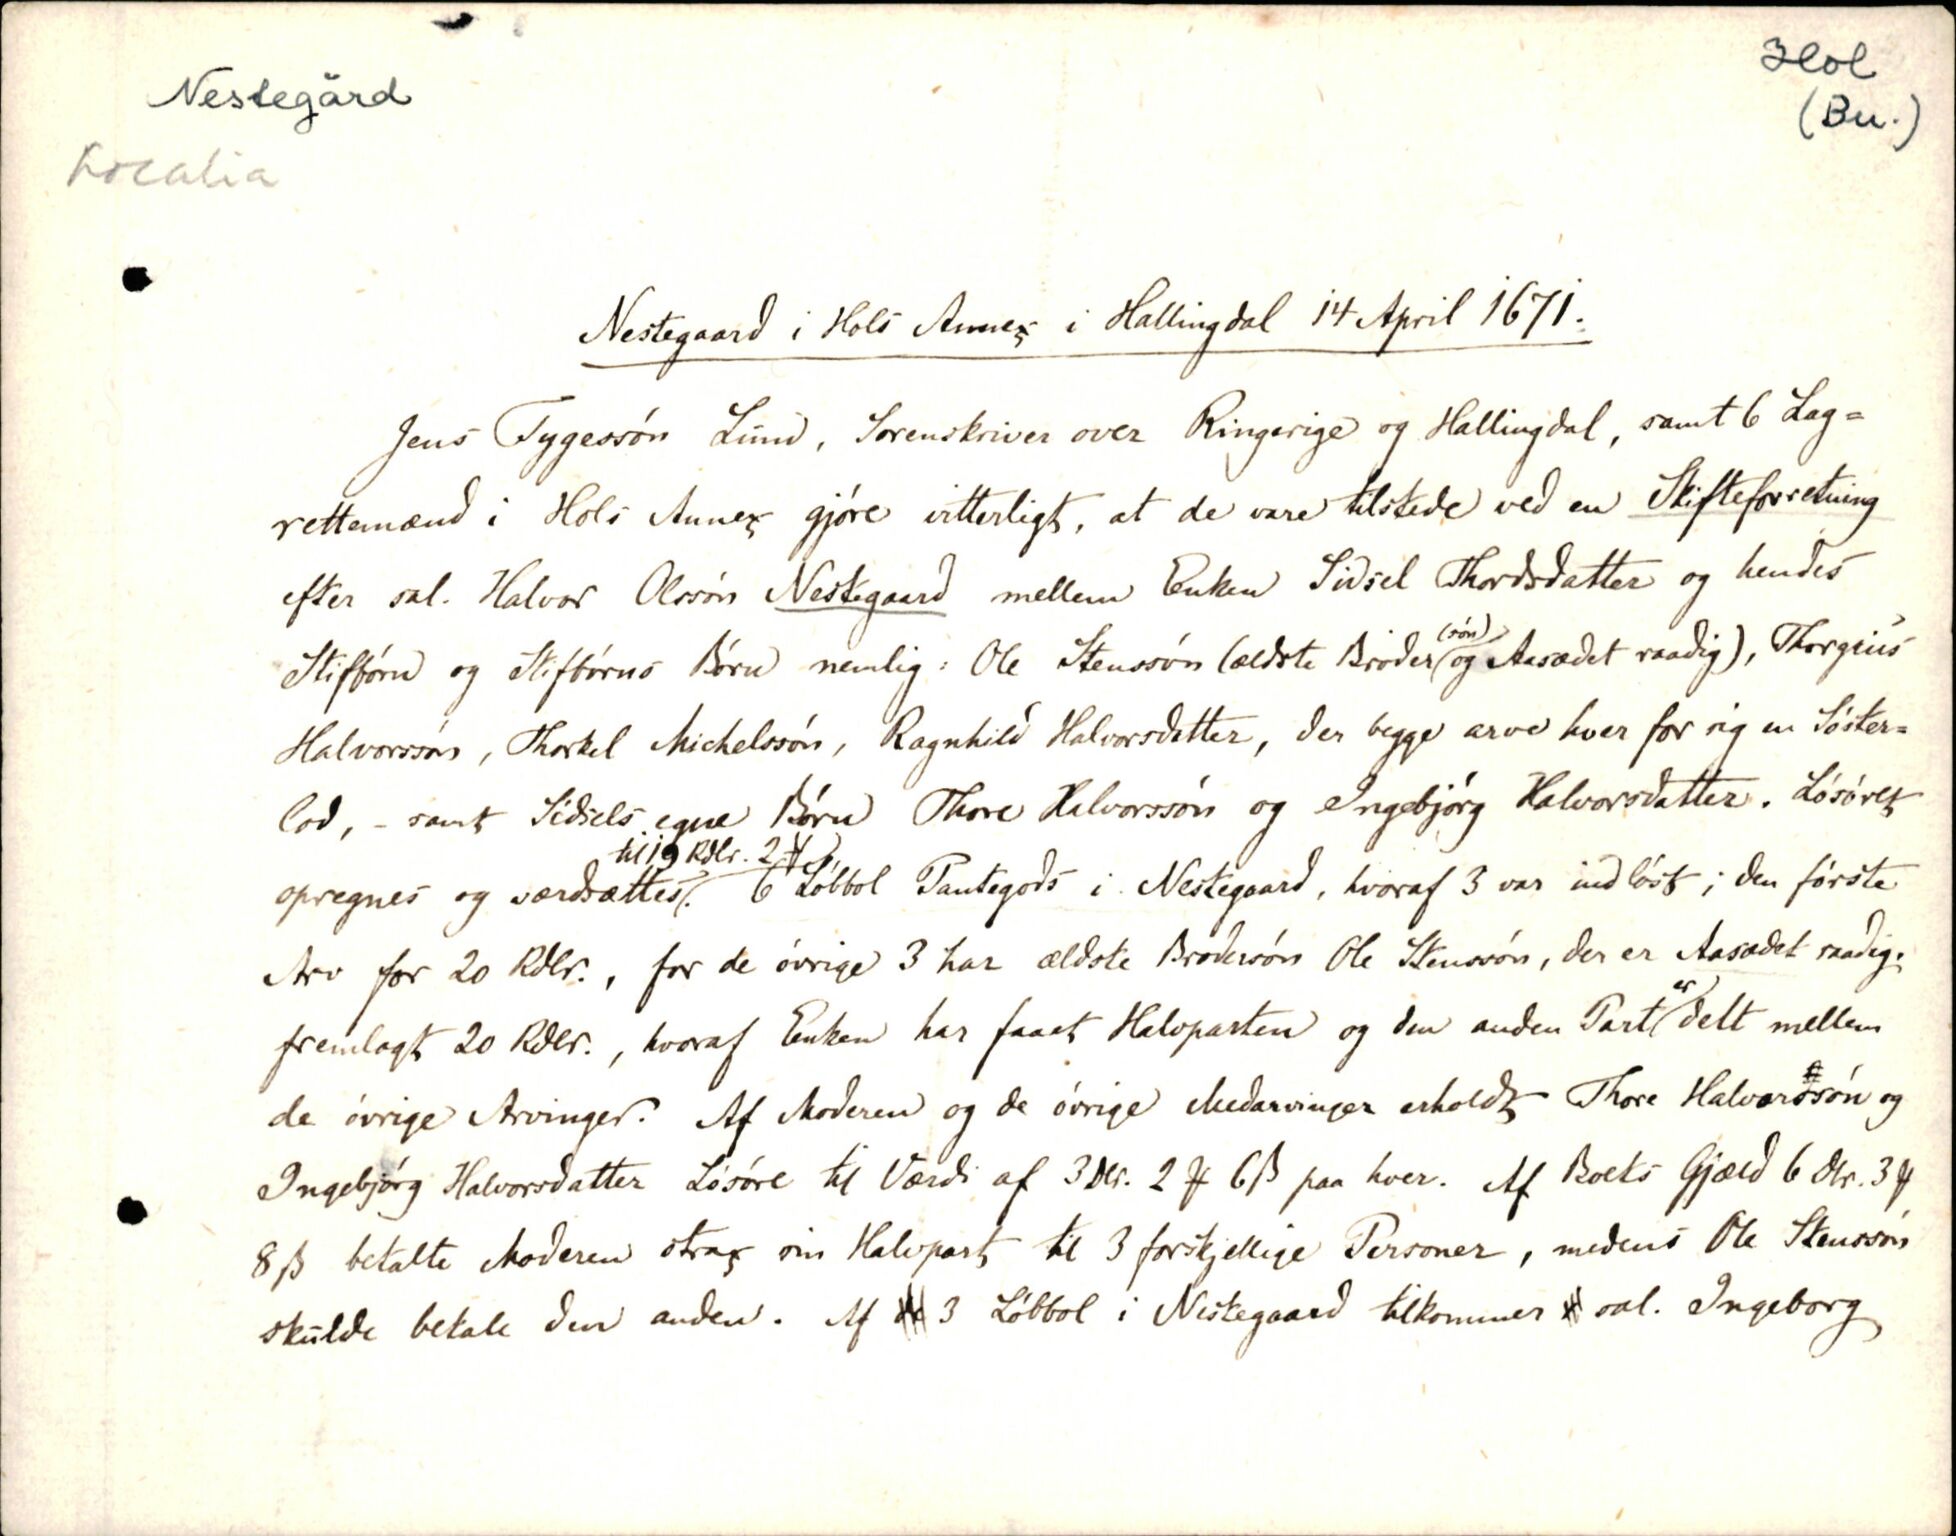 Nestegård
Hol
(Bu.)
Localia
Nestegaard i Hols Annex i Hallingdal 14 April 1671.
Jens Tygessön Lund, Sorenskriver over Ringerige og Hallingdal, samt 6 Lag=
rettemænd i Hols Annex gjöre vitterligt, at de vare tilstede ved en Skifteforretning
efter sal. Halvor Olssön Nestegaard mellem Enken Sidsel Thordsdatter og hendes
Stifbörn og Stifbörns Börn nemlig: Ole Stenssön (ældste Broder (sön) og Aasædet raadig), Thorgius
Halvorssön, Thorkel Michelssön, Ragnhild Halvorsdatter, der begge arve hver for sig en Söster=
lod, - samt Sidsels egne Börn Thore Halvorssön og Ingebjörg Halvorsdatter. Lösöret
opregnes og værdsættes til 19 Rdlr. 2 ₰. 6 Löbbol Pantegods i Nestegaard, hvoraf 3 var indlöst; den förste
Arv for 20 Rdlr., for de övrige 3 har ældste Brodersön Ole Stenssön, der er Aasædet raadig,
fremlagt 20 Rdlr., hvoraf Enken har faaet Halvparten og den anden Part er delt mellem
de övrige Arvinger. Af Moderen og de övrige Medarvinger erholdt Thore Halvorssön og
Ingebjörg Halvorsdatter Lösöre til Værdi af 3 Dlr. 2 ₰ 6 β paa hver. Af Boets Gjæld 6 dlr. 3 ₰
8 β betalte Moderen strax sin Halvpart til 3 forskjellige Personer, medens Ole Stenssön
skulde betale den anden. Af 3 Löbbol i Nestegaard tilkommer sal. Ingeborg